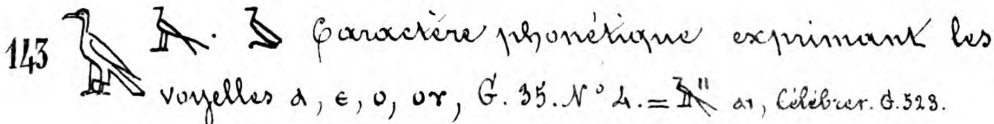 143 𓄿 𓄿. 𓄿 Caractère phonétique exprimant les
voyelles ⲁ, ⲉ, ⲟ, ⲟⲩ, G. 35. N° 4. = 𓄿" ⲁⲓ, Célébrer. G. 523.